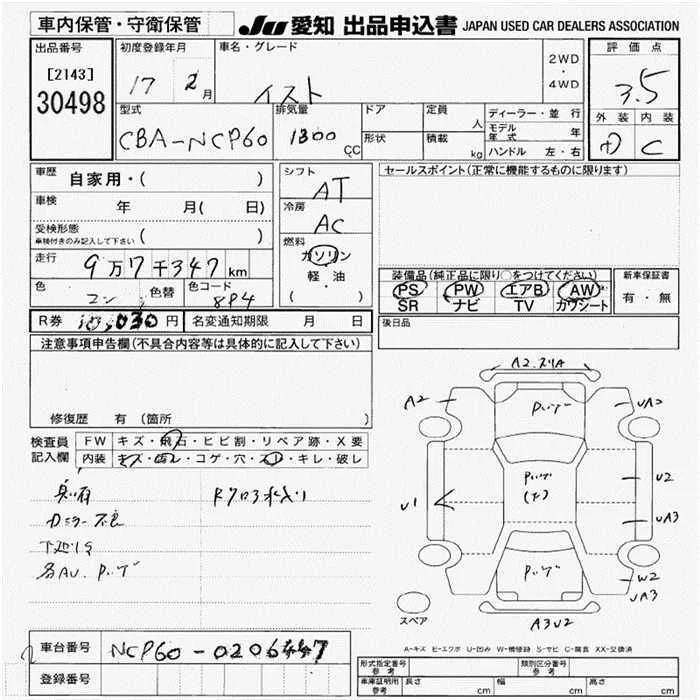 車内保管・守衛保管
JU 愛知 出品申込書 JAPAN USED CAR DEALERS ASSOCIATION
出品番号
[2143]
30498
初度登録年月
17 2月
車名・グレード
イスト
2WD
・
4WD
評価点
3.5
外装 内装
C
型式
CBA-NCP60
排気量
1300 CC
ドア
形状
定員 人
積載 kg
ディーラー・並 行
モデル年式 年
ハンドル 左・右
車歴
自家用・( )
車検 年 月( 日)
受検形態
車検付きのみ記入して下さい ( )
走行
9万7千347km
色
コン
色替
色コード
8P4
シフト
AT
冷房
AC
燃料
ガソリン
軽・油
( )
セールスポイント(正常に機能するものに限ります)
装備品(純正品に限り○をつけてください)
PS PW エアB AW
SR ナビ TV カワシート
新車保証書
有・無
R券 10,030円
名変通知期限 月 日
後日品
注意事項申告欄(不具合内容等は具体的に記入して下さい)
修復歴 有(箇所 )
検査員記入欄
FW キズ・飛石・ヒビ割・リペア跡・X要
内装 キズ・汚レ・コゲ・穴・スレ・キレ・破レ
A2 スリA
A2
UA2
U1
U2
UA3
W2
UA3
A3U2
スペア
A-キズ E-エクボ U-凹み W-補修跡 S-サビ C-腐食 XX-交換済
車台番号
登録番号
形式指定番号
参考
類別区分番号
参考
車庫証明用
参考
長さ cm 幅 cm 高さ cm